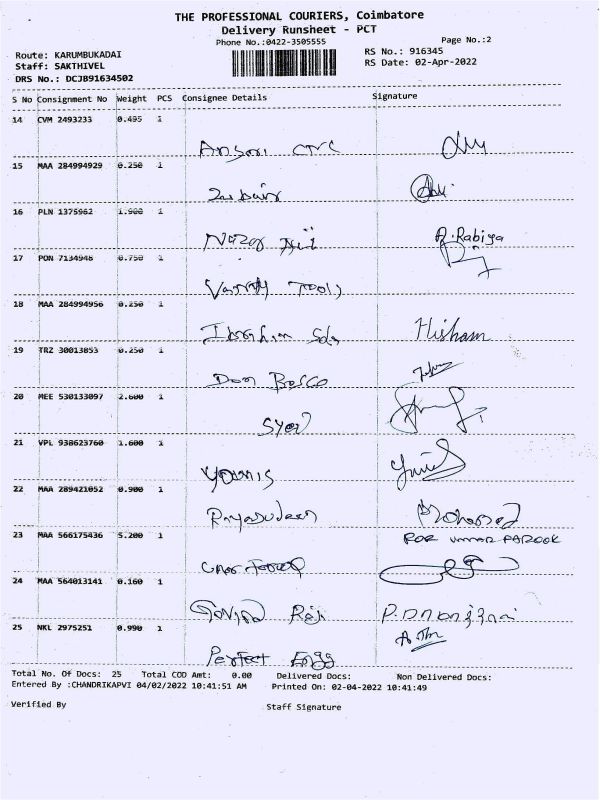 THE PROFESSIONAL COURIERS, Coimbatore
Delivery Runsheet - PCT
Phone No.:0422-3505555
Page No.:2
Route: KARUMBUKADAI
RS No.: 916345
Staff: SAKTHIVEL
RS Date: 02-Apr-2022
DRS No.: DCJB91634502
S No Consignment No Weight PCS Consignee Details Signature
14 CVM 2493233 0.495 1
Ansari CTVC
15 MAA 284994929 0.250 1
Zubair
16 PLN 1375962 1.900 1
A.Rabiya
17 PON 7134948 0.750 1
Variety Tools
18 MAA 284994956 0.250 1
Ibrahim Hisham
19 TRZ 30013853 0.250 1
Don Bosco
20 MEE 530133097 2.600 1
Syed
21 VPL 938623760 1.600 1
Younis
22 MAA 289421052 0.900 1
Riyasudeen Mohamed
23 MAA 566175436 5.200 1
FOR UMMAR FAROOK
Umar Farook
24 MAA 564013141 0.160 1
25 NKL 2975251 0.990 1
Perfect Engg
Total No. Of Docs: 25 Total COD Amt: 0.00 Delivered Docs: Non Delivered Docs:
Entered By :CHANDRIKAPVI 04/02/2022 10:41:51 AM Printed On: 02-04-2022 10:41:49
Verified By
Staff Signature